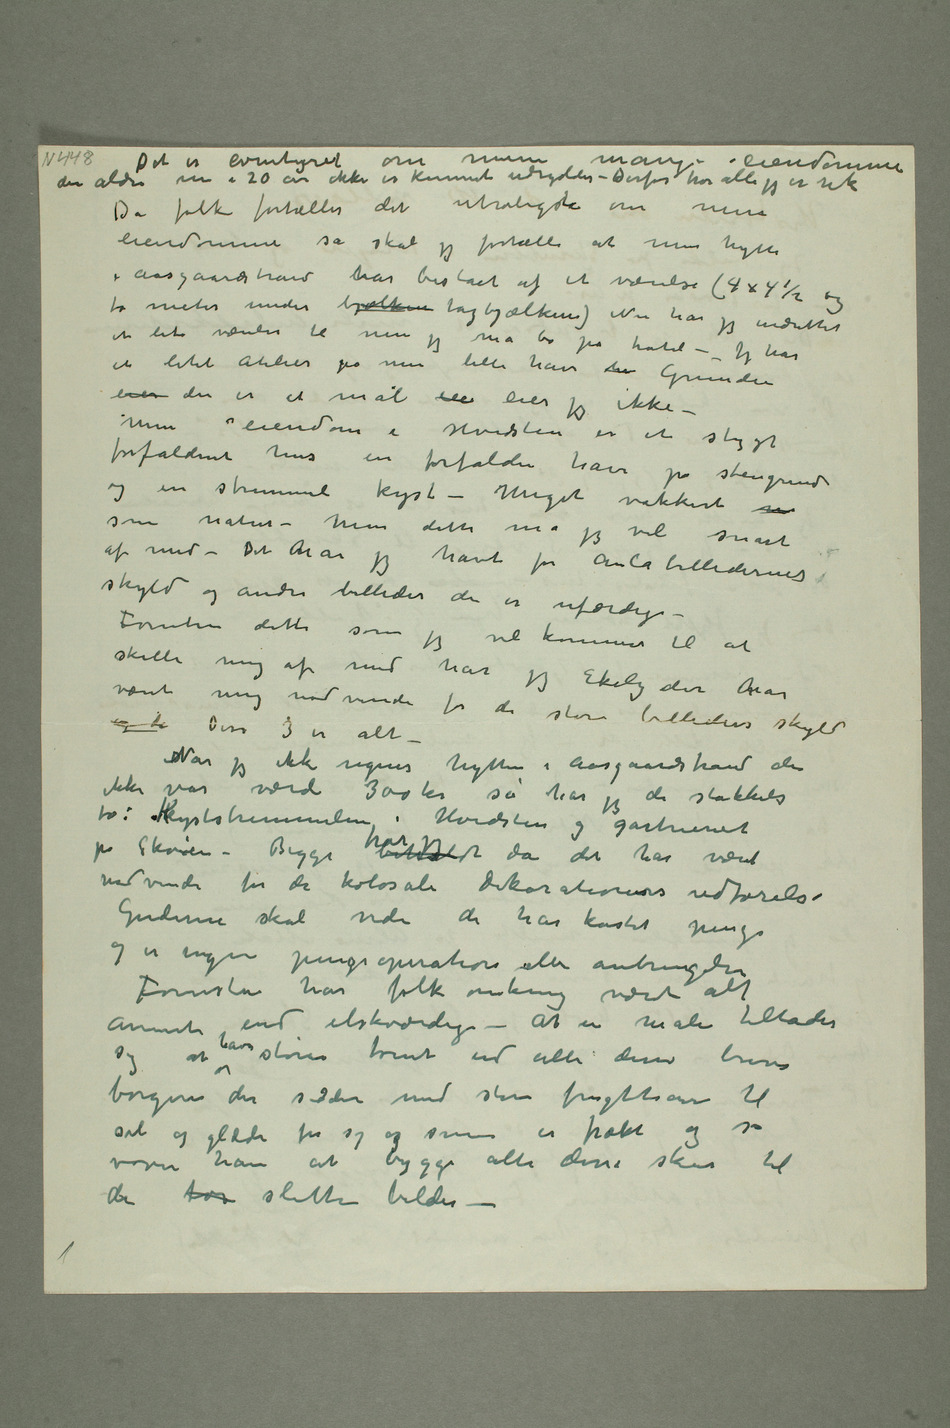 N 448
Det er eventyret om mine mange eiendomme
der aldri nu i 20 år ikke er kunnet udryddes – Derfor tror alle jeg er rik
Da folk fortæller det utroligste om mine
eiendomme så skal jeg fortælle at min hytte
i Aasgaardstrand har beståt af et værelse (4 x 4 1/2 og
to meter under bjælken tagbjælkene) Nu har jeg indrettet
et lite værelse til men jeg må bo på hotel – Jeg har
et litet atelier på min lille have Grunden
eier der er et mål eie eier jeg ikke –
Min eiendom i Hvidsten er et stygt
forfaldent hus en forfalden have på stengrund
og en strimmel kyst – Meget vakkert
som natur – Men dette må jeg vel snart
af med – Det har jeg havt for Aulabilledernes
skyld og andre billeder der er ufærdige –
Foruten dette som jeg vel kommer til at
skille mig af med har jeg Ekely der har
været mig nødvendi for de store billeders skyld
og de Disse 3 er alt –
Når jeg ikke regner hytten i Aasgaardstrand der
ikke var værd 300 kr så har jeg de stakkels
to: Kyststrimmelen i Hvidsten og gartneriet
på Skøien – Begge har jeg beholdt da det har været
nødvendi for de kolosale dekorationers udførelse
Guderne skal vide de har kostet penge
og er ingen pengeoperation eller anbringelse
Forresten har folk omkring været alt
annet end elskværdige – At en maler tillader
sig at have større tomt end alle disse brave
borgere der sidder med store frugthaver til
sol og glæde for sig og sine er frækt og så
vover han at bygge alle disse skur til
de tos slette bilder –
1